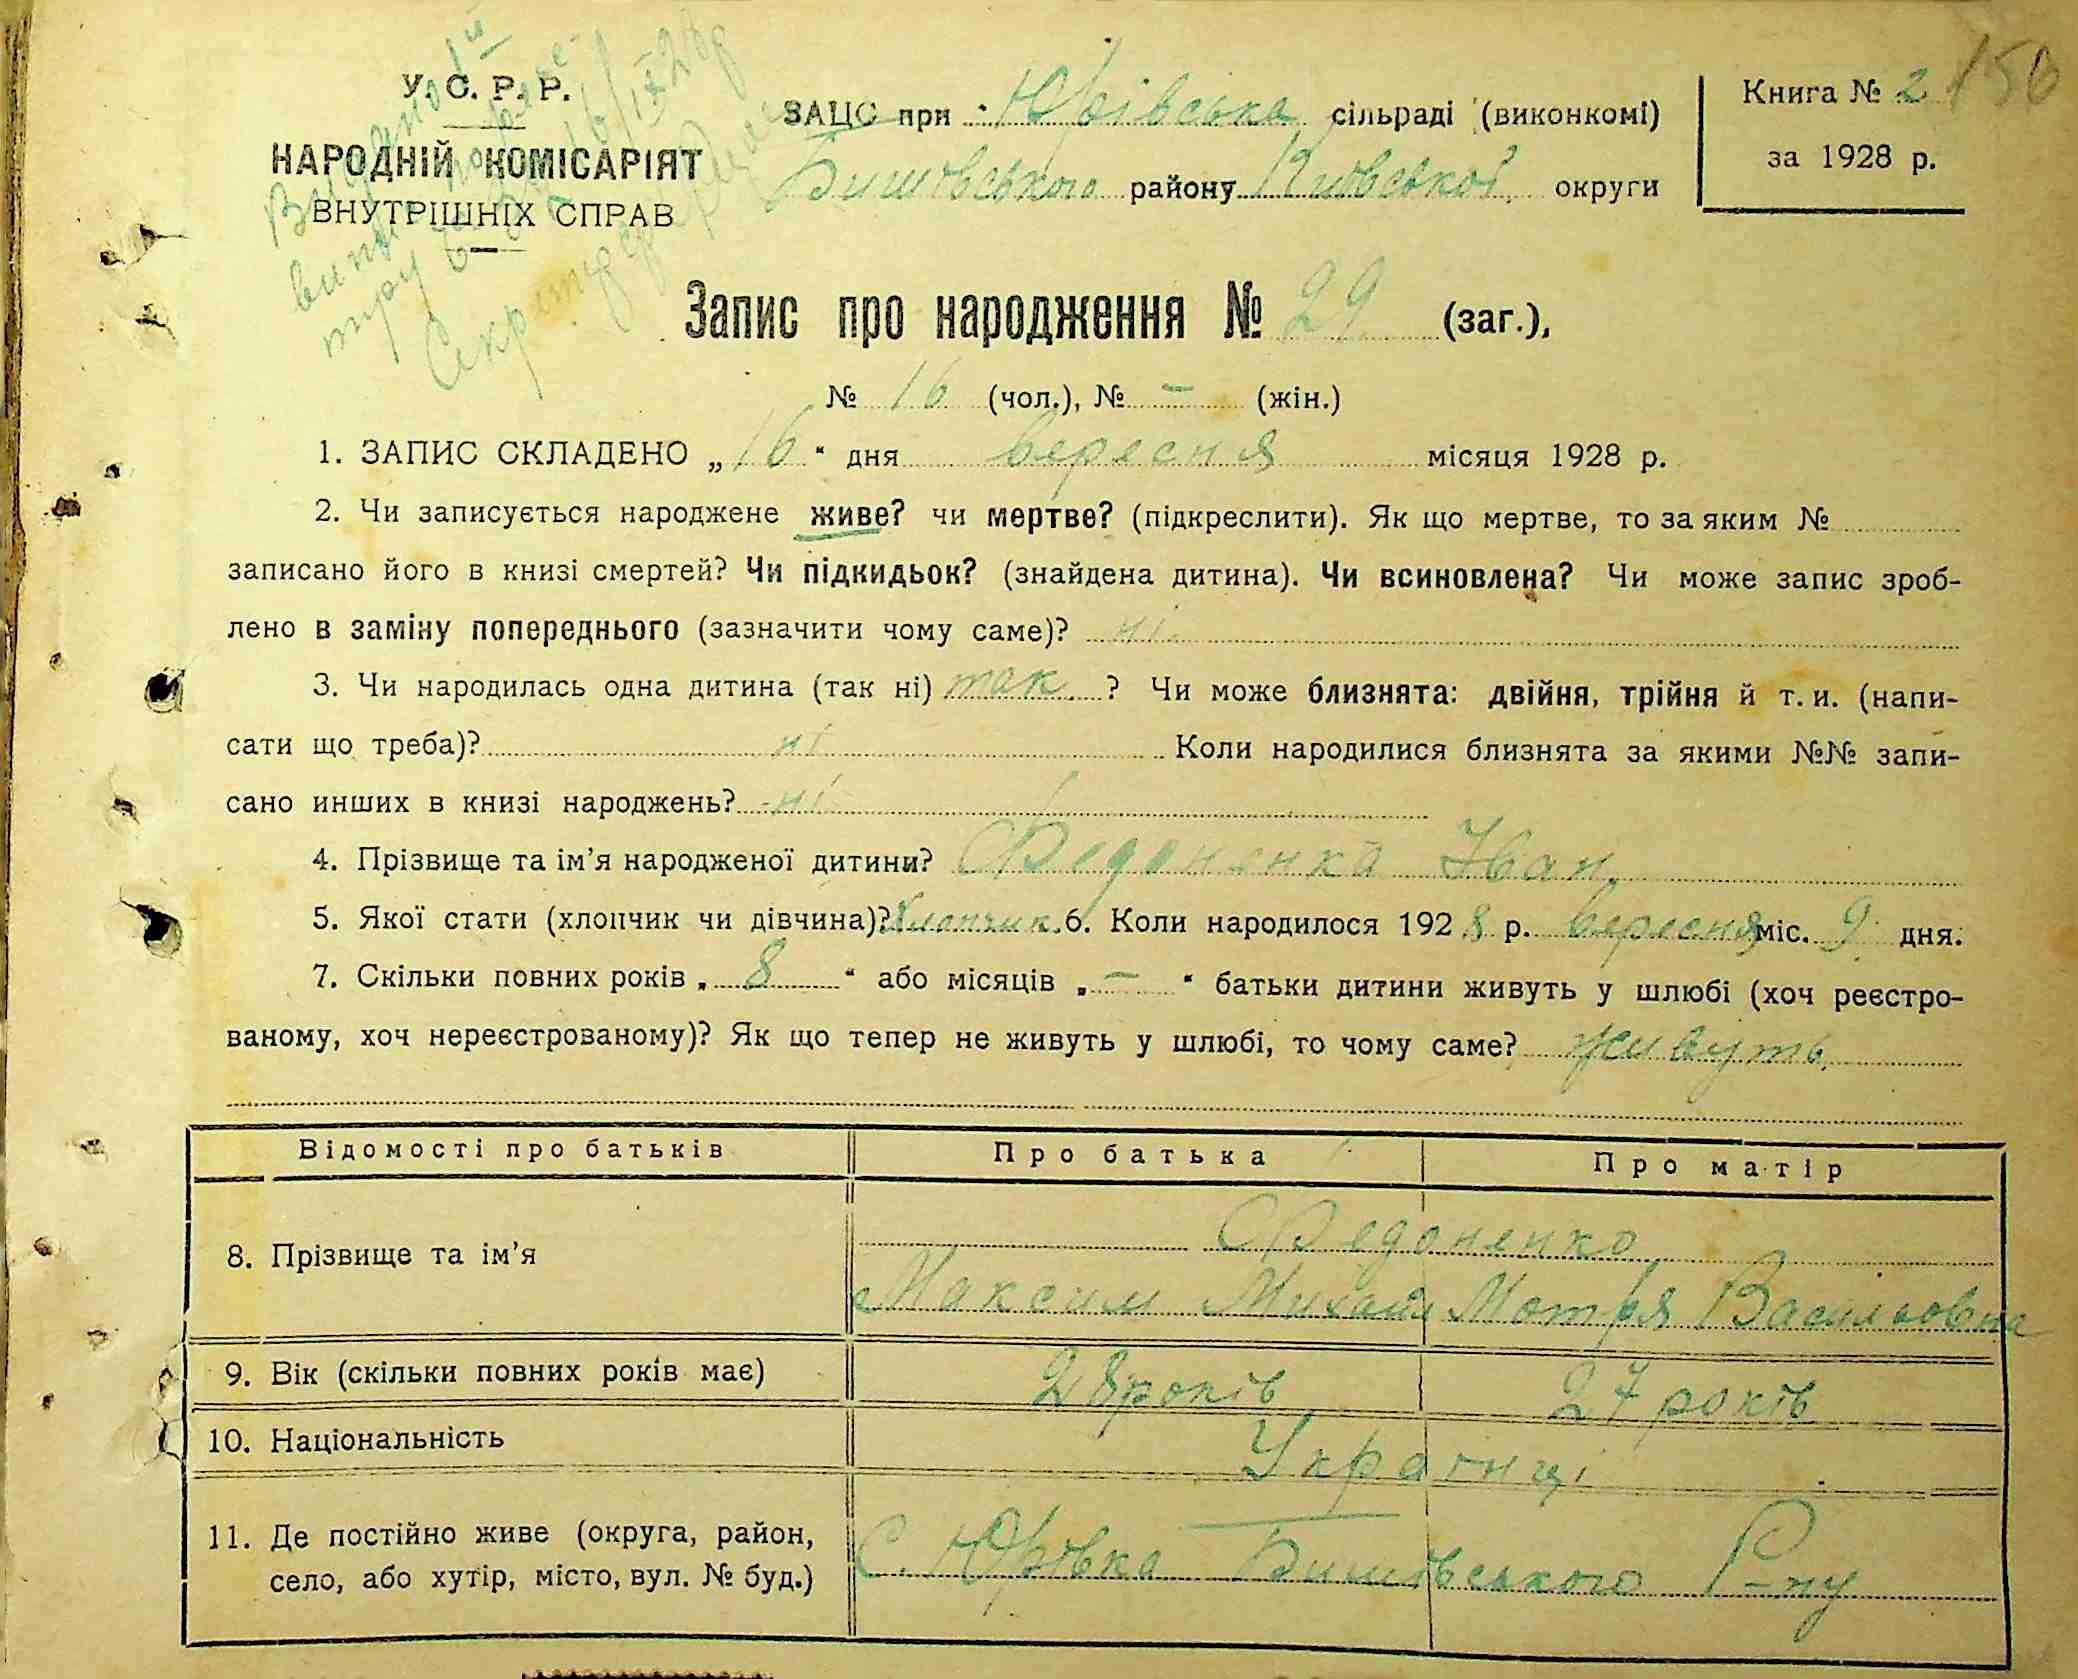 У. С. Р. Р.
НАРОДНІЙ КОМІСАРІЯТ
ВНУТРІШНІХ СПРАВ
Видано
16/IX 28 р
ЗАЦС при Юрівська сільраді (виконкомі)
Бишівського району Київської округи
Книга № 2
за 1928 р.
150
Запис про народження № 29 (заг.),
№ 16 (чол.), № – (жін.)
1. ЗАПИС СКЛАДЕНО „16“ дня вересня місяця 1928 р.
2. Чи записується народжене живе? чи мертве? (підкреслити). Як що мертве, то за яким №
записано його в книзі смертей? Чи підкидьок? (знайдена дитина). Чи всиновлена? Чи може запис зроб-
лено в заміну попереднього (зазначити чому саме)? ні.
3. Чи народилась одна дитина (так ні) так ? Чи може близнята: двійня, трійня й т. и. (напи-
сати що треба)? ні Коли народилися близнята за якими №№ запи-
сано инших в книзі народжень? ні
4. Прізвище та ім’я народженої дитини? Федоненко Іван
5. Якої стати (хлопчик чи дівчина)? Хлопчик 6. Коли народилося 1928 р. вересня міс. 9 дня.
7. Скільки повних років „8“ або місяців „–“ батьки дитини живуть у шлюбі (хоч реєстро-
ваному, хоч нереєстрованому)? Як що тепер не живуть у шлюбі, то чому саме? живуть
Відомості про батьків Про батька Про матір
8. Прізвище та ім’я Федоненко
Максим Михайл Мотря Васильовна
9. Вік (скільки повних років має) 28 років 27 років
10. Національність Українці
11. Де постійно живе (округа, район,
село, або хутір, місто, вул. № буд.) с. Юрівка Бишівського Р-ну